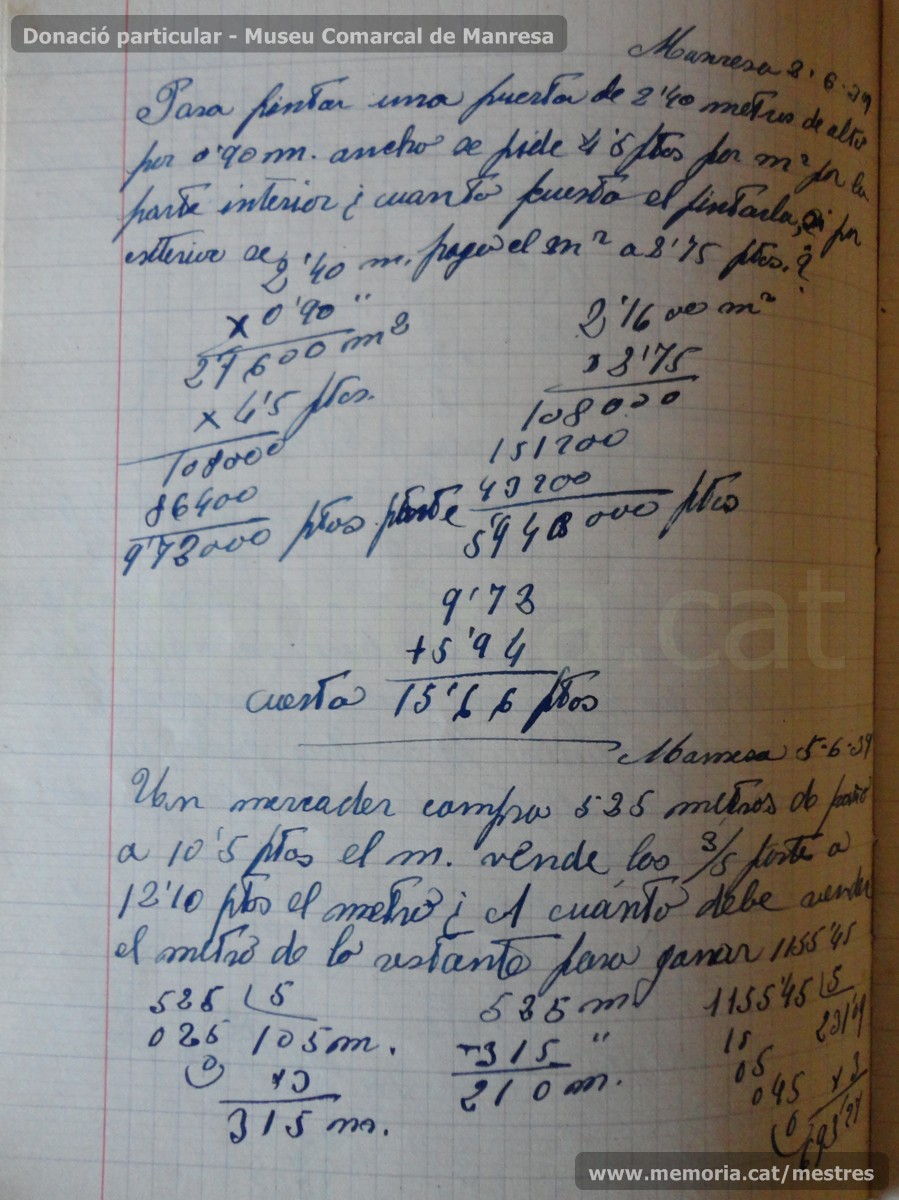 Donació particular - Museu Comarcal de Manresa
Manresa 2·6·39
Para pintar una puerta de 2'40 metros de alto
por 0'90 m. ancho se pide 4'5 ptas por m² por la
parte interior ¿ cuanto cuesta el pintarla, si por
exterior se paga el m² a 2'75 ptas.?
2'40 m.
x 0'90 "
2'1600 m²
x 4'5 ptas.
108000
86400
9'72000 ptas parte
2'1600 m²
x 2'75
108000
151200
43200
5'94 000 ptas
9'72
+5'94
cuesta 15'66 ptas
Manresa 5-6-39
Un mercader compra 525 metros de paño
a 10'5 ptas el m. vende los 3/5 parte a
12'10 ptas el metro ¿ A cuánto debe vender
el metro de lo restante para ganar 1155'45
525 5
025 105 m.
0 x3
315 m.
525 m.
-315 "
210 m.
1155'45 5
15 231'09
05
045 x 3
0
www.memoria.cat/mestres